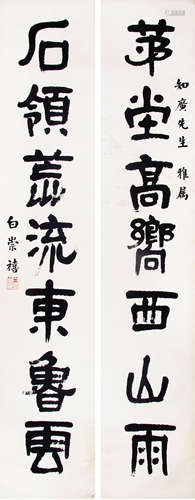 堂高嚮西山雨
知廣先生 雅屬
石領荒流東魯雲
白崇禧